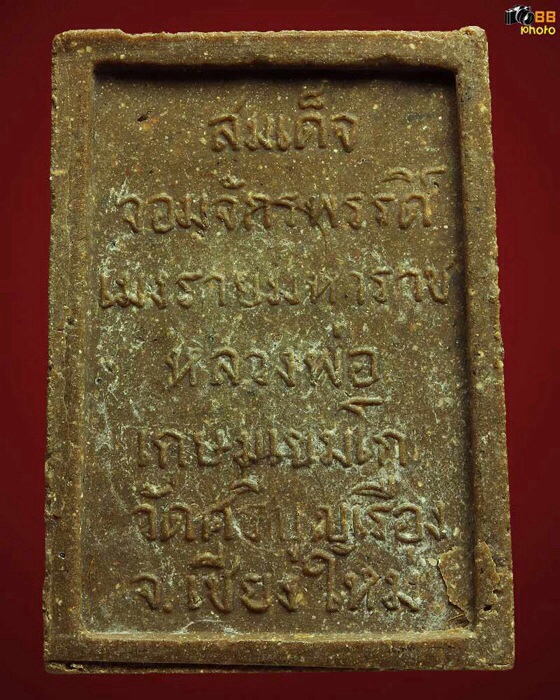 BB
photo
สมเด็จ
จอมจักรพรรดิ์
เมงรายมหาราช
หลวงพ่อ
เกษมเขมโก
วัดศรีบุญเรือง
จ.เชียงใหม่